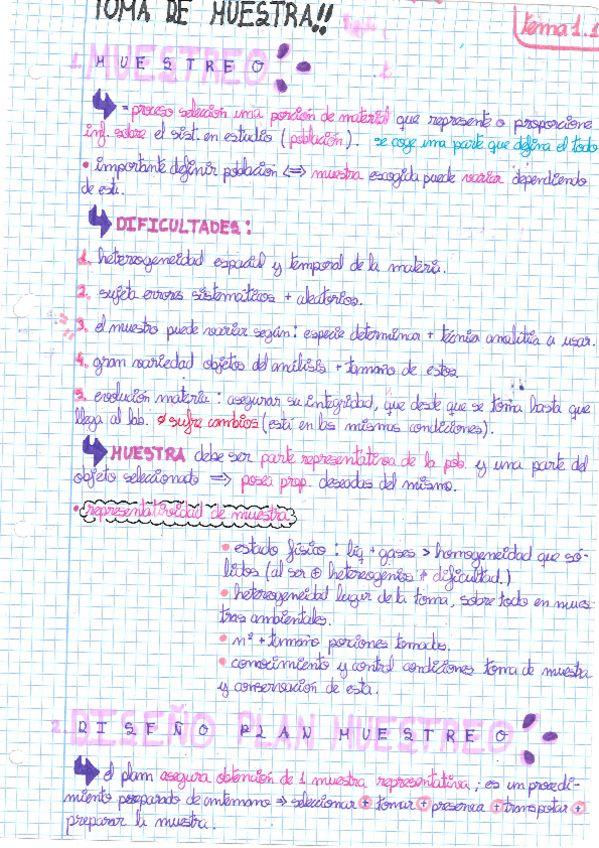 TOMA DE MUESTRA!!
Tema 1.1
1. MUESTREO
= proceso selección una porción de material que represente o proporcione
inf. sobre el sist. en estudio (población). se coge una parte que defina el todo
• importante definir población <=> muestra escogida puede variar dependiendo
de esti.
DIFICULTADES:
1. heterogeneidad espacial y temporal de la materia.
2. sujeta errores sistematicos + aleatorios.
3. el muestro puede variar según: especie determinar + técnica analitica a usar.
4. gran variedad objetos del análisis + tamaño de estos.
5. evolución materia: asegurar su integridad, que desde que se toma hasta que
llega al lab. ø sufre cambios (está en las mismas condiciones).
MUESTRA debe ser parte representativa de la pob. y una parte del
objeto seleccionato => posea prop. deseadas del mismo.
• representatividad de muestra
• estado físico: liq + gases > homogeneidad que só-
lidos (al ser ⊕ heterogenios ↑ dificultad.)
• heterogeneidad lugar de la toma, sobre todo en mues-
tras ambientales.
• nº + tamaño porciones tomadas.
• conocimiento y control condiciones toma de muestra
y conservación de esta.
2. DISEÑO PLAN MUESTREO
el plam asegura obtención de 1 muestra representativa; es un procedi-
miento preparado de antemano => seleccionar ⊕ tomar ⊕ preservar ⊕ transpotar ⊕
preparar la muestra.